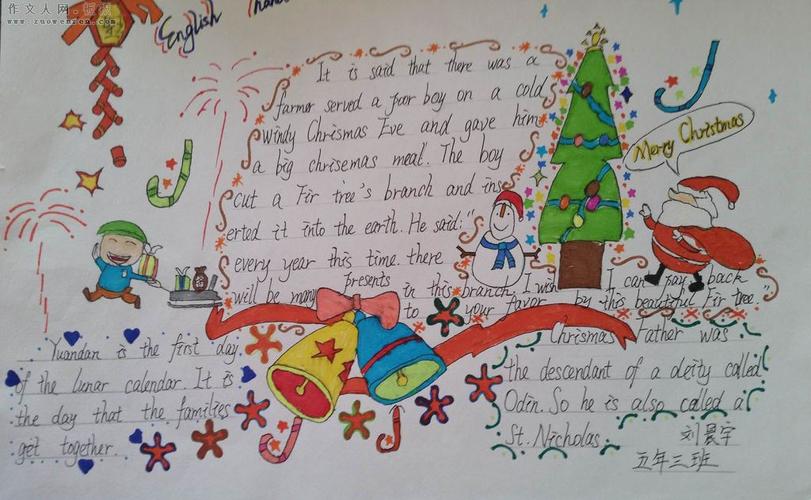 作文人网
www.zuowenren.com
English
It is said that there was a
farmer served a poor boy on a cold
windy Chrismas Eve and gave him
a big chrisemas meal. The boy
cut a Fir tree's branch and ins
erted it into the earth. He said:"
every year this time. there
will be many presents in this branch. I wish I can pay back
to your favor by this beautiful Fir tree."
Merry Christmas
Yuandan is the first day
of the lunar calendar. It is
the day that the families
get together.
Chrismas Father was
the descendant of a deity called
Odin. So he is also called a
St. Nicholas.
刘晨宇
五年三班